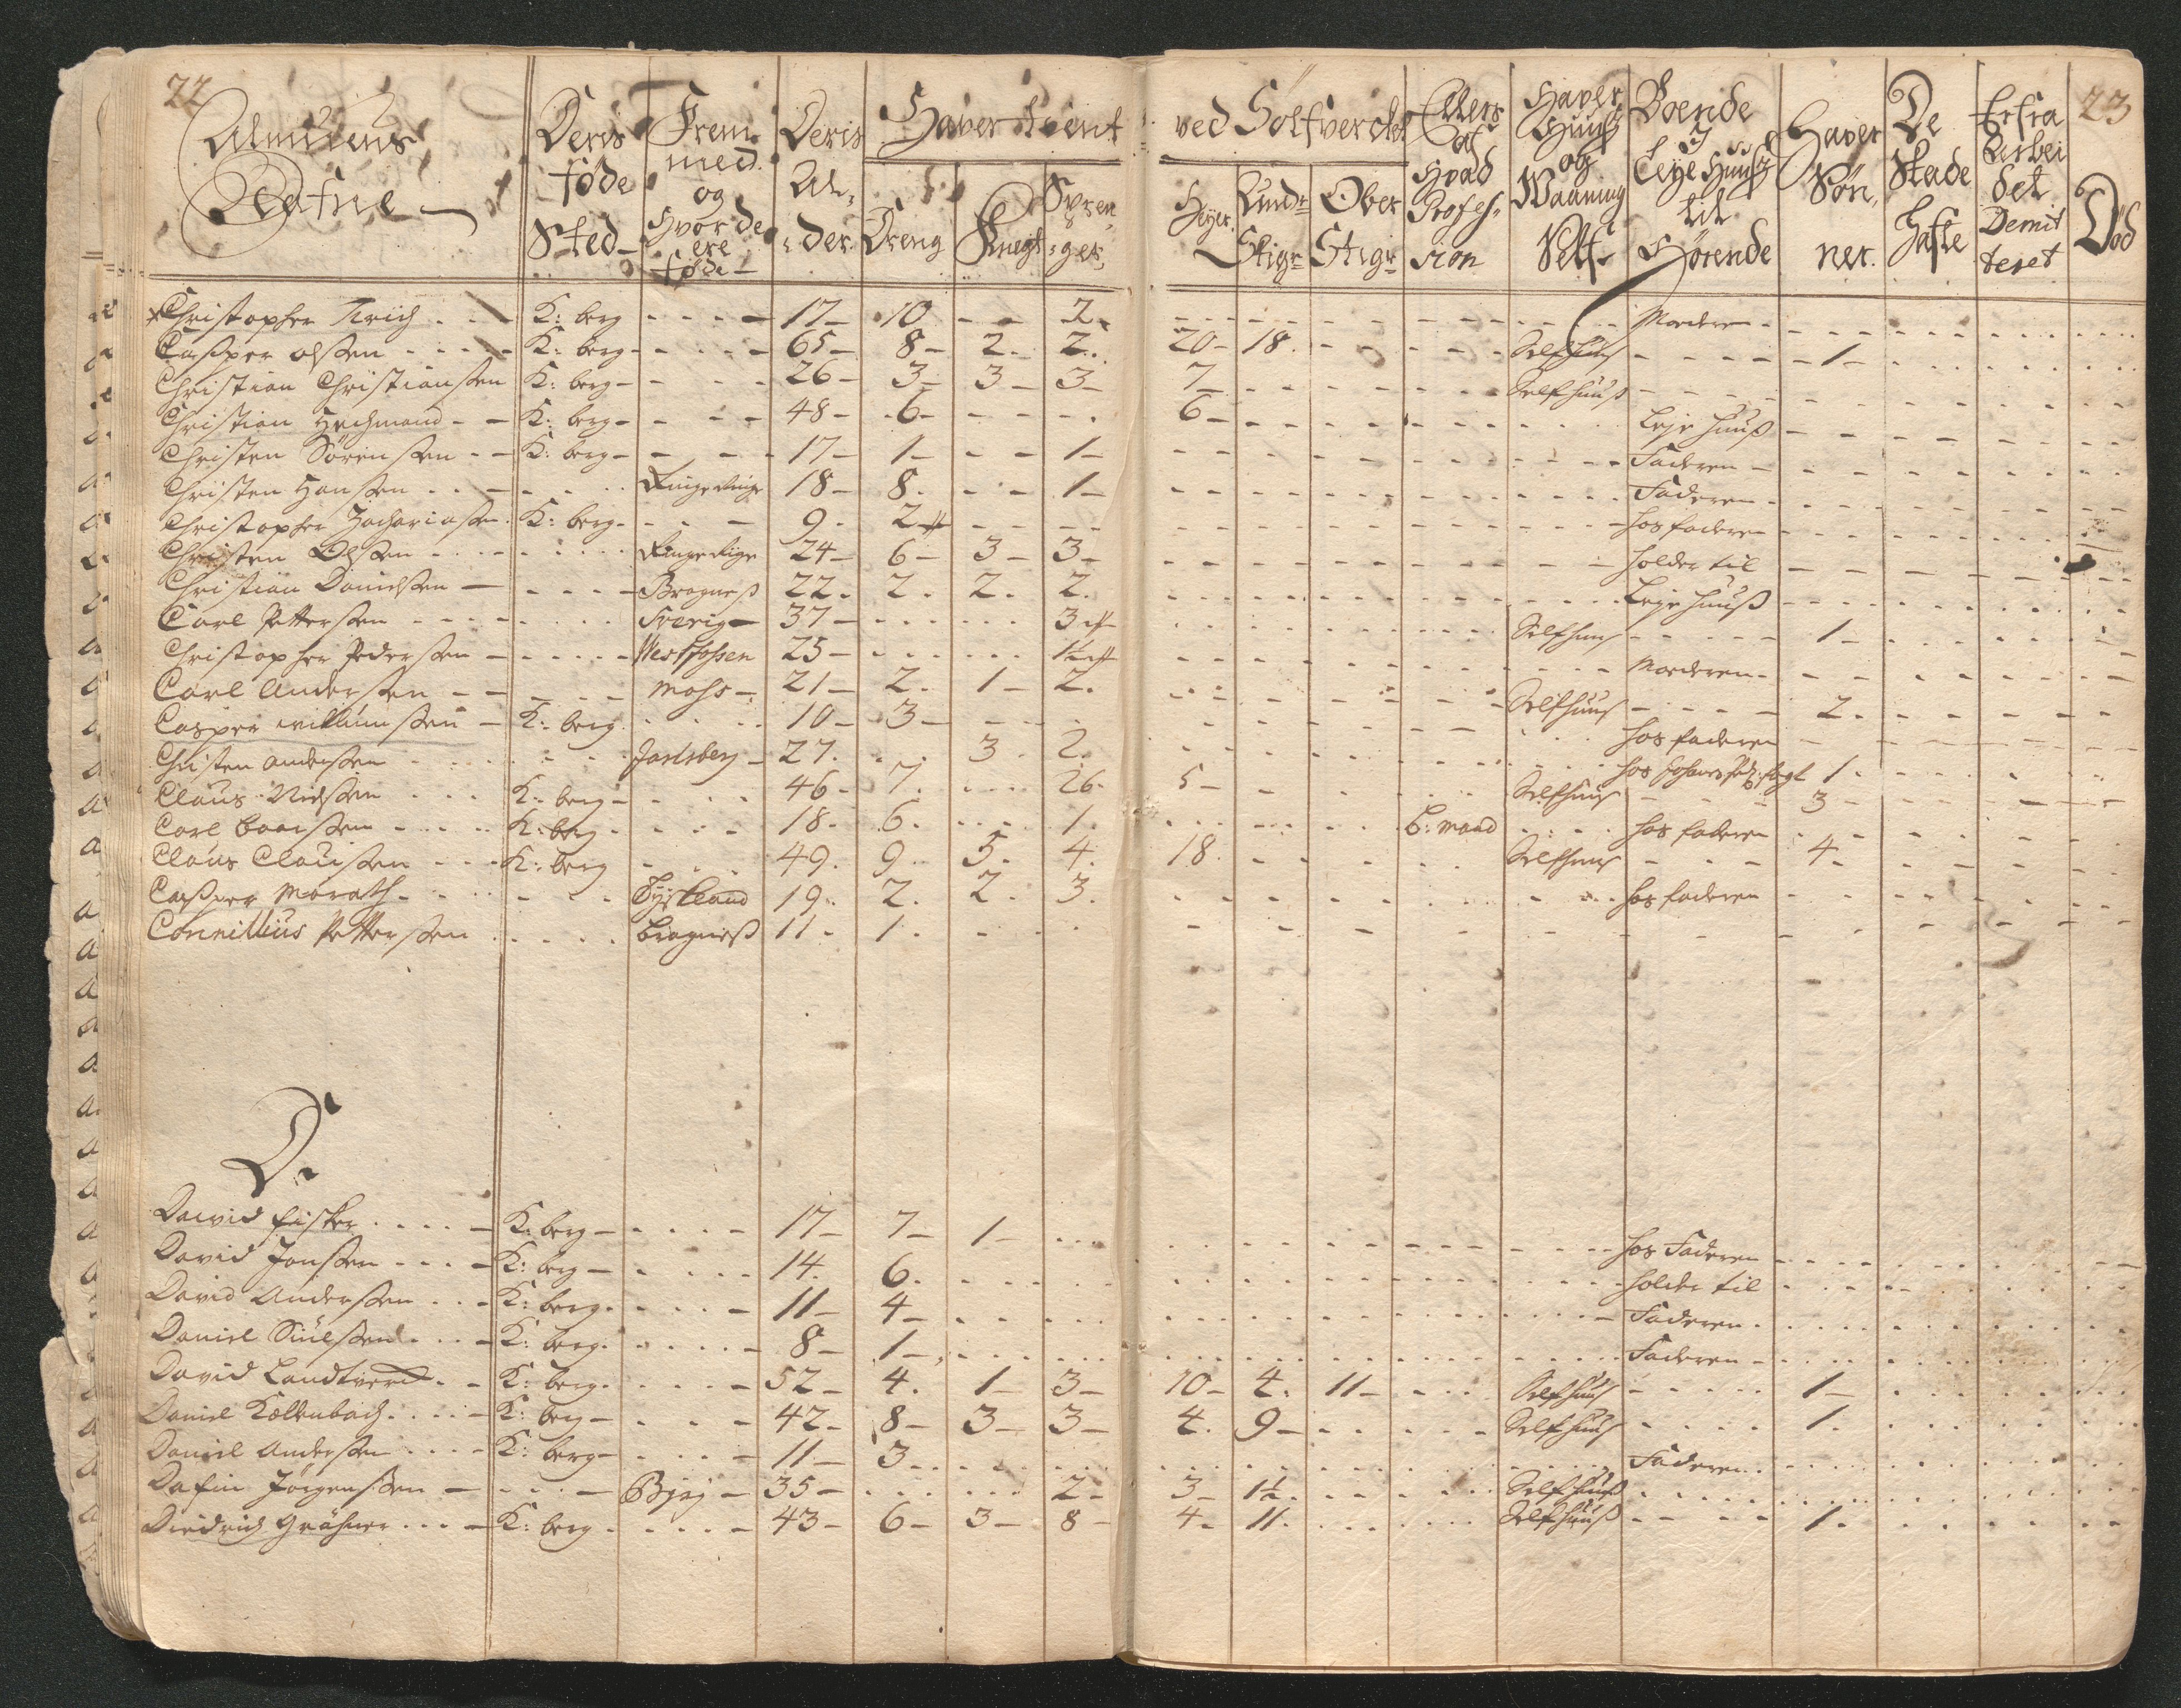 22
Almuens Nafne
Deris føde Sted
Frem med og Hvor de ere føde
Deris Al, der.
Haver tient
Dreng
Knegt
Spren, ger,
ved Sølfvercket
Heyer.
Undr Stigr
Ober Stigr
Ellers af Hvad Profes, sion
Haver Huus og Waaning Self
Boende I Leye Huus til Hørende
Haver Søn, ner.
De Skade Hafte
Extra Arbei det Demit teret
Død
23
Christopher K: berg 17 10 2 Moederen
Casper Olsen K: berg 65 8 2 2 20 18 Selfhuus 1
Christian Christiansen K: berg 26 3 3 3 7 Selfhuus
Christian Hechmand K: berg 48 6 6 Leje huus
Christen Sörensen K: berg 17 1 1 Faderen
Christen Hansen Ringerige 18 8 1 Faderen
Christopher Zachariasen K: berg 9 2 hos faderen
Christen Olsen Ringerige 24 6 3 3 holder til
Christian Danielsen Bragness 22 2 2 2 Leje huus
Carl Pettersen Sverig 37 3 Selfhuus 1
Christopher Pedersen Westfossen 25 1½ Moederen
Carl Andersen Moss 21 2 1 2 Selfhuus 2
Casper Willumsen K: berg 10 3 hos faderen
Christen Andersen Jarlsberg 27 3 2 hos 1
Claus Nielsen K: berg 46 7 26 5 Selfhuus 3
Carl K: berg 18 6 1 B: mand hos faderen
Claus Clausen K: berg 49 9 5 4 18 Selfhuus 4
Casper Morath Tyskland 19 2 2 3 hos faderen
Cornillius Pettersen Bragness 11 1
D.
David Fisker K: berg 17 7 1 hos Faderen
David Jonsen K: berg 14 6 holder til
David Andersen K: berg 11 4 Faderen
Daniel K: berg 8 1 Faderen
David Landtverd K: berg 52 4 1 3 10 4 11 Selfhuus 1
Daniel Kollenbach K: berg 42 8 3 3 4 9 Selfhuus 1
Daniel Andersen K: berg 11 3 Faderen
Dafin Jörgensen 35 2 3 1½ Selfhuus
Diedrich Gröhner K: berg 43 6 3 8 4 11 Selfhuus 1